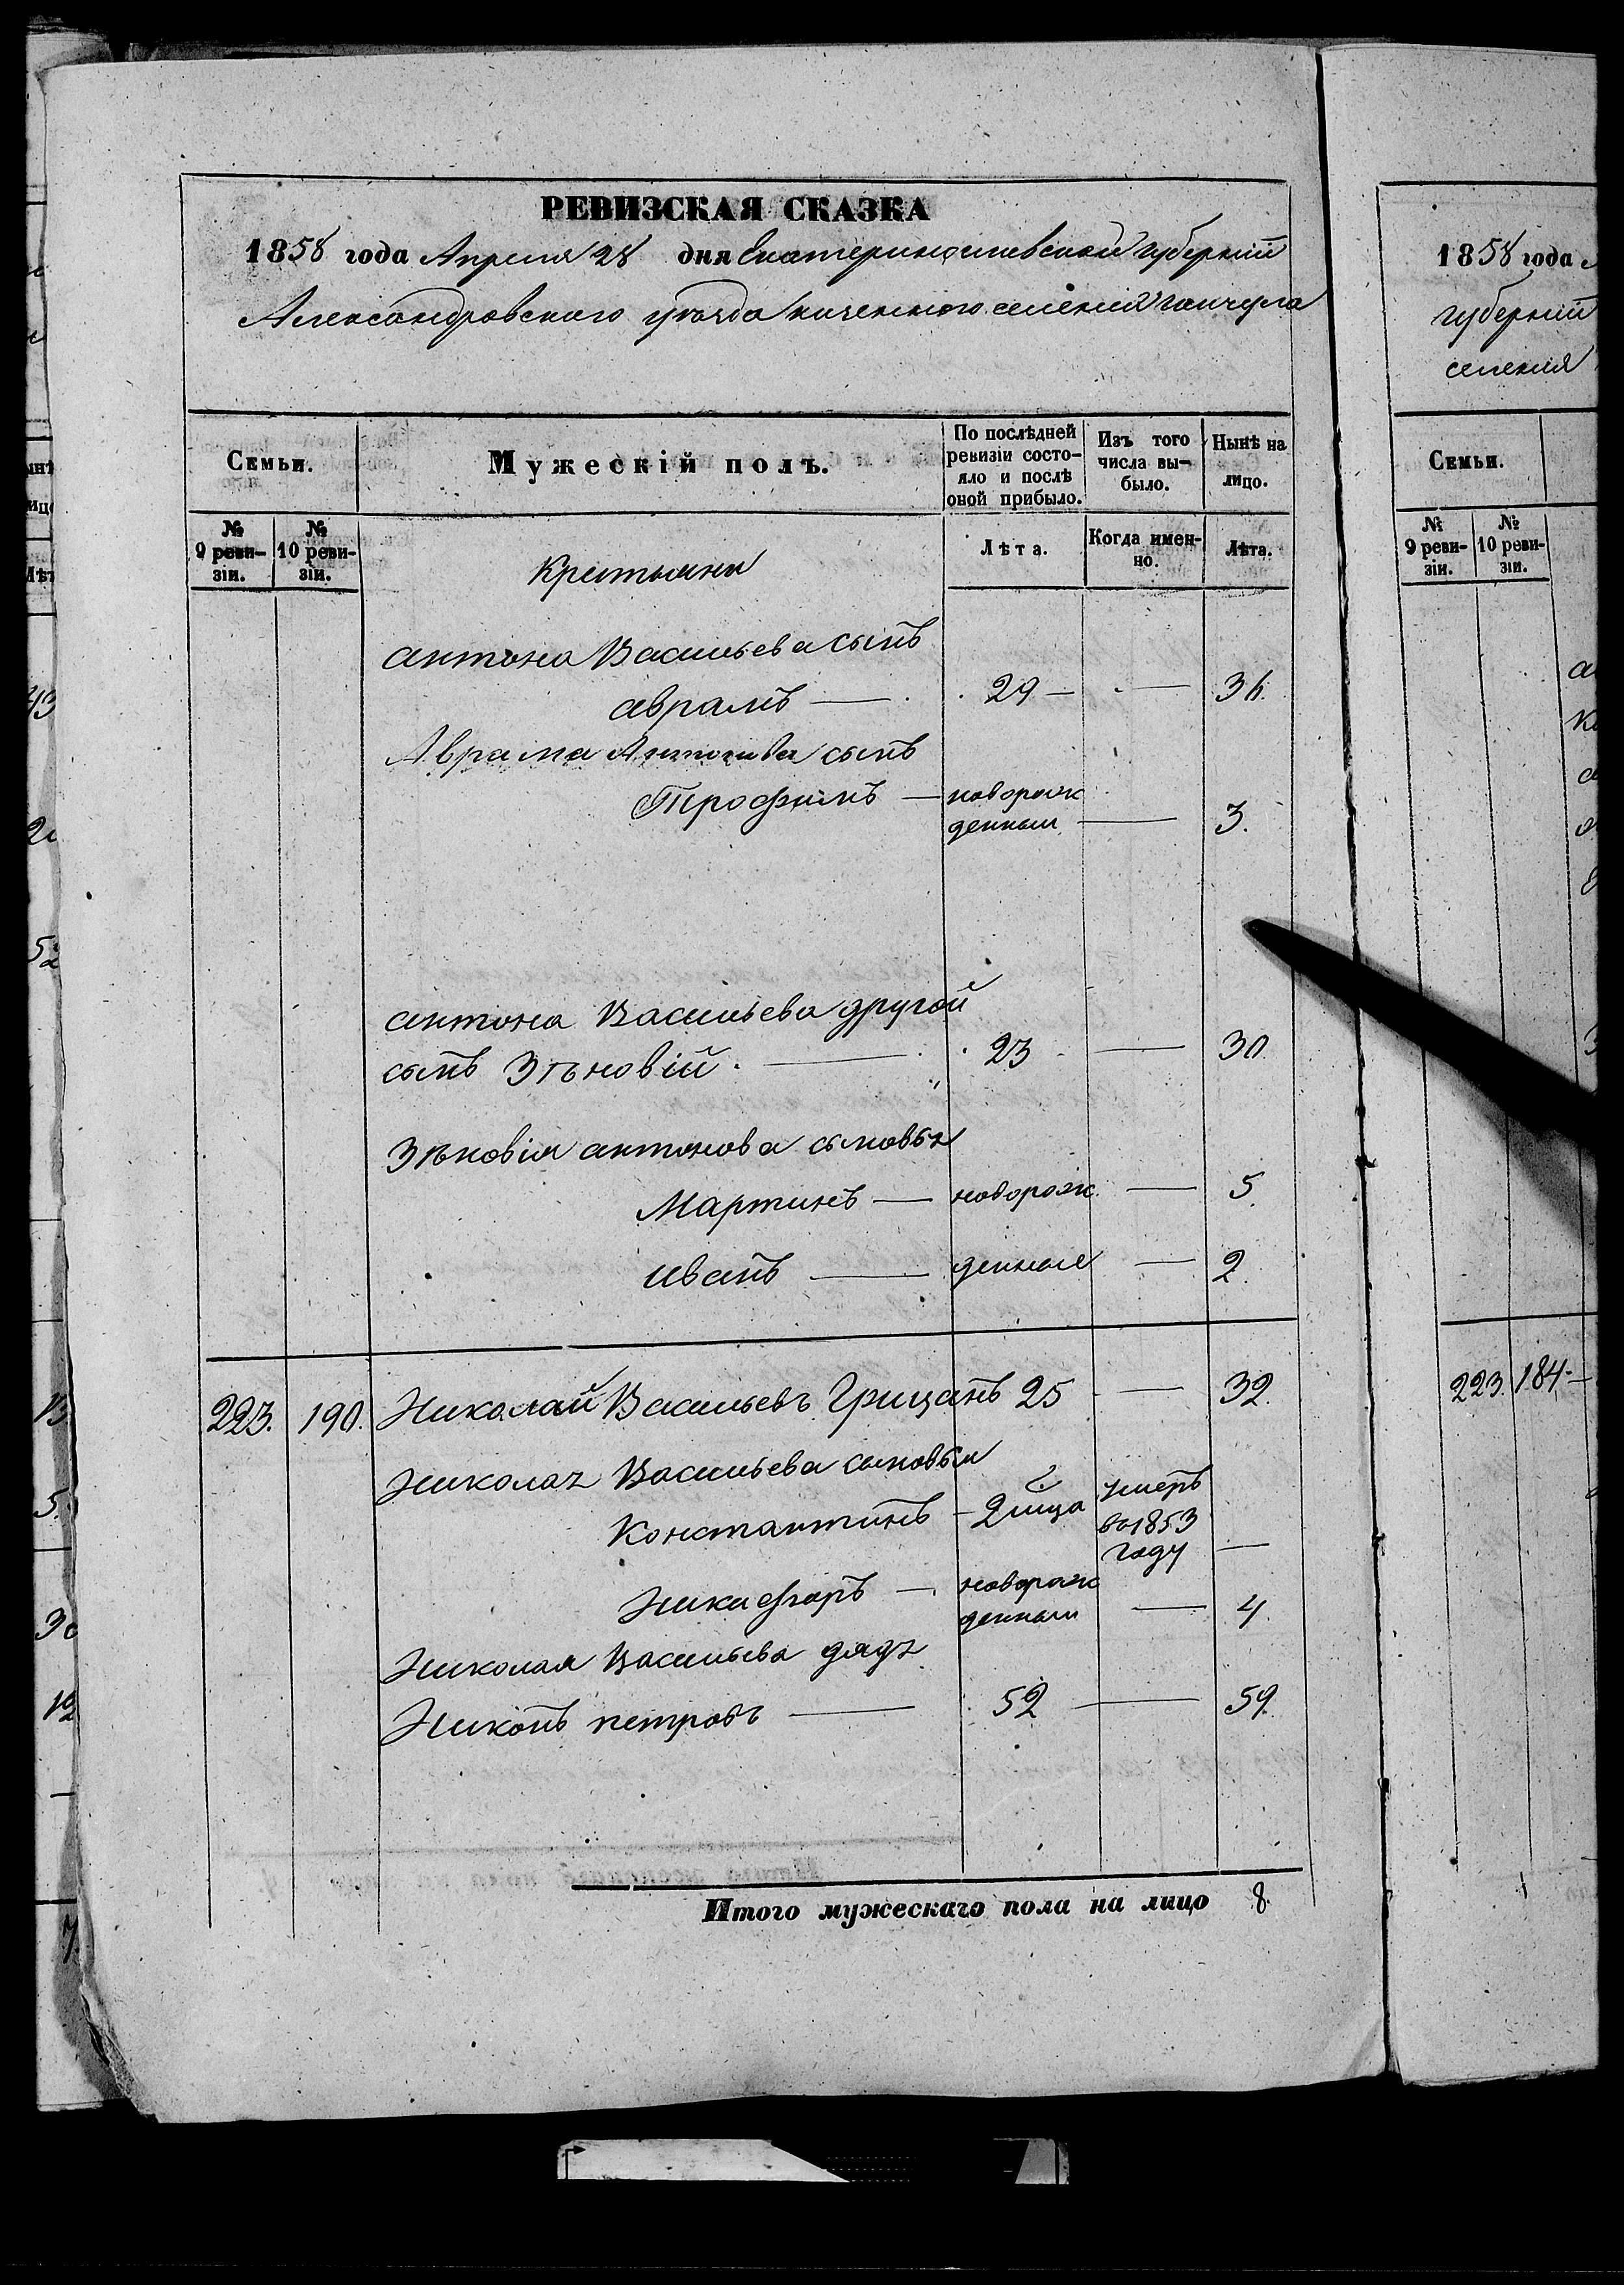 РЕВИЗСКАЯ СКАЗКА
1858 года Апреля 28 дня Екатеринославской губернии
Александровского уезда казенного селения Гайчула
Семьи.
Мужескій полъ.
По послѣдней ревизіи состо-
яло и послѣ
оной прибыло.
Изъ того
числа вы-
было.
Нынѣ на
лицо.
№ 9 реви-
зіи.
№ 10 реви-
зіи.
Крестьяни
Лѣта.
Когда имен-
но.
Лѣта.
антона Васильева сынъ
аврамъ — 29 — — 36.
Аврама Антонова сынъ
Трофимъ — новорож
денный — 3.
антона Васильева другой
сынъ Зѣновій. — 23 — 30.
Зѣновія антонова сыновья
Мартинъ — новорож. — 5
иванъ — денные — 2.
223. 190. Николай Васильевъ Грицанъ 25 — 32.
Николая Васильева сыновья
Константинъ — 2 м̃ца умеръ
во 1853
году —
Никифоръ — новорож
денный — 4.
Николая Васильева дядя
Никонъ петровъ — 52 — 59.
Итого мужескаго пола на лицо 8.
1858 года
губерній
селения
Семьи.
№ 9 реви-
зіи.
№ 10 реви-
зіи.
223. 184.